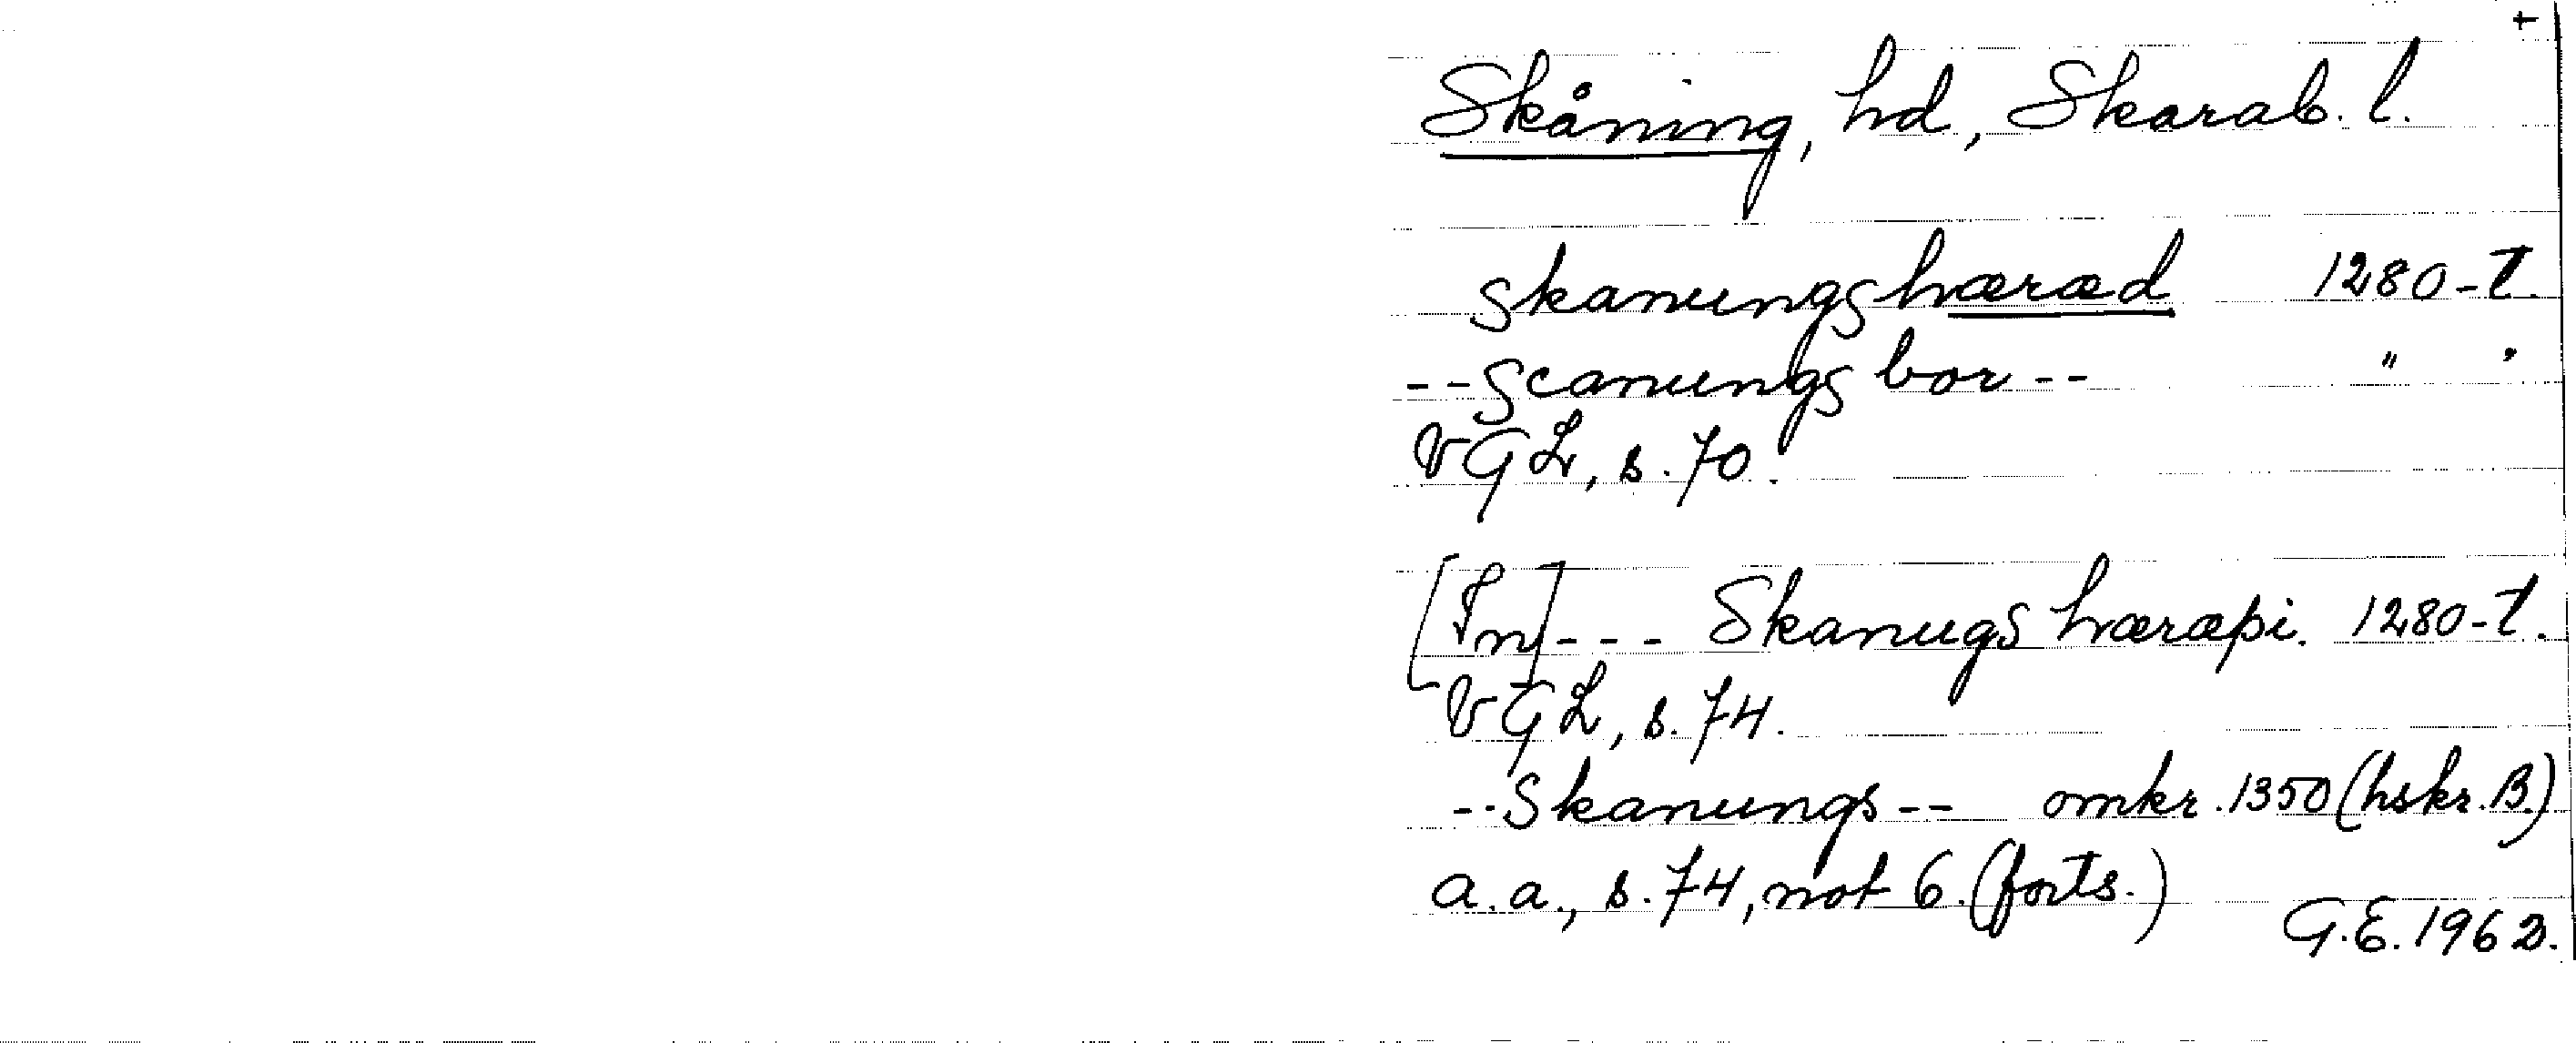 +
Skåning, hd, Skarab. l.
skanungshæræd 1280-t.
--scanungs bor-- " "
VGL, s. 70.
[In]--- Skanugs hæræþi. 1280-t.
VGL, s. 74.
--Skanungs-- omkr. 1350 (hskr. B.)
a. a., s. 74, not 6. (forts.)
G.E. 1962.